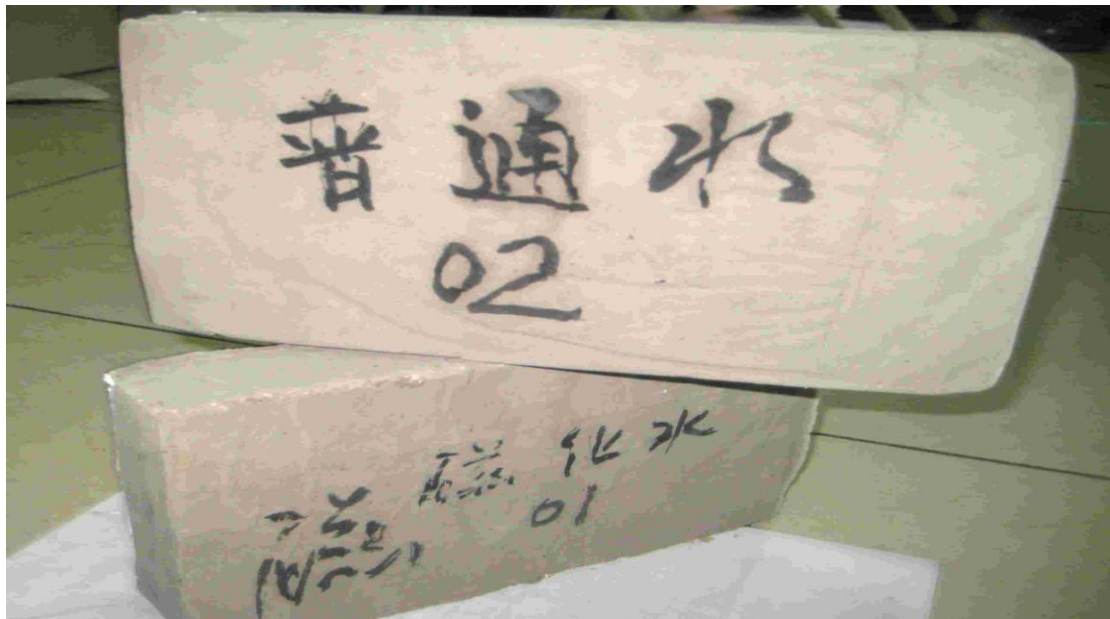 普通水
02
磁化水
01